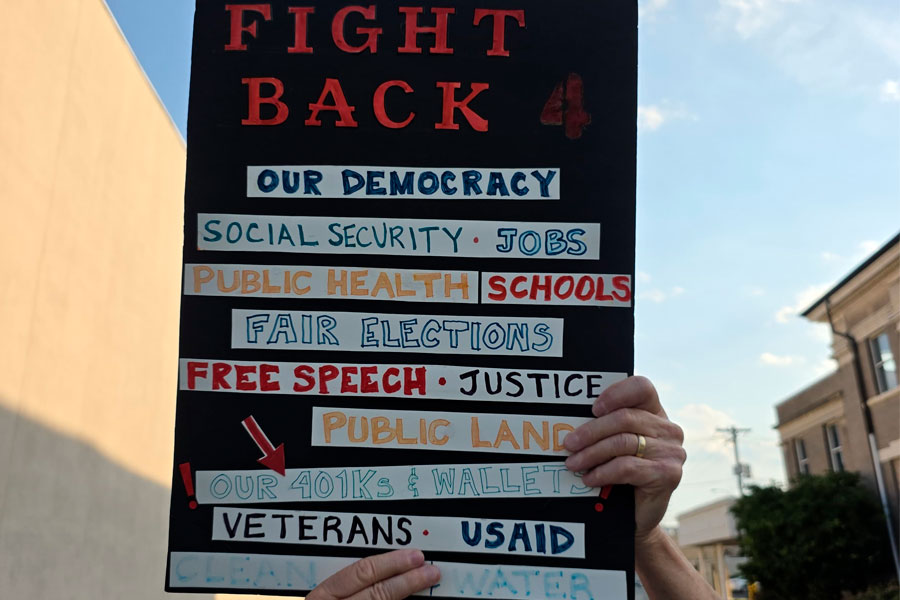 FIGHT
BACK 4
OUR DEMOCRACY
SOCIAL SECURITY • JOBS
PUBLIC HEALTH SCHOOLS
FAIR ELECTIONS
FREE SPEECH • JUSTICE
PUBLIC LAND
! OUR 401Ks & WALLETS !
VETERANS • USAID
CLEAN WATER